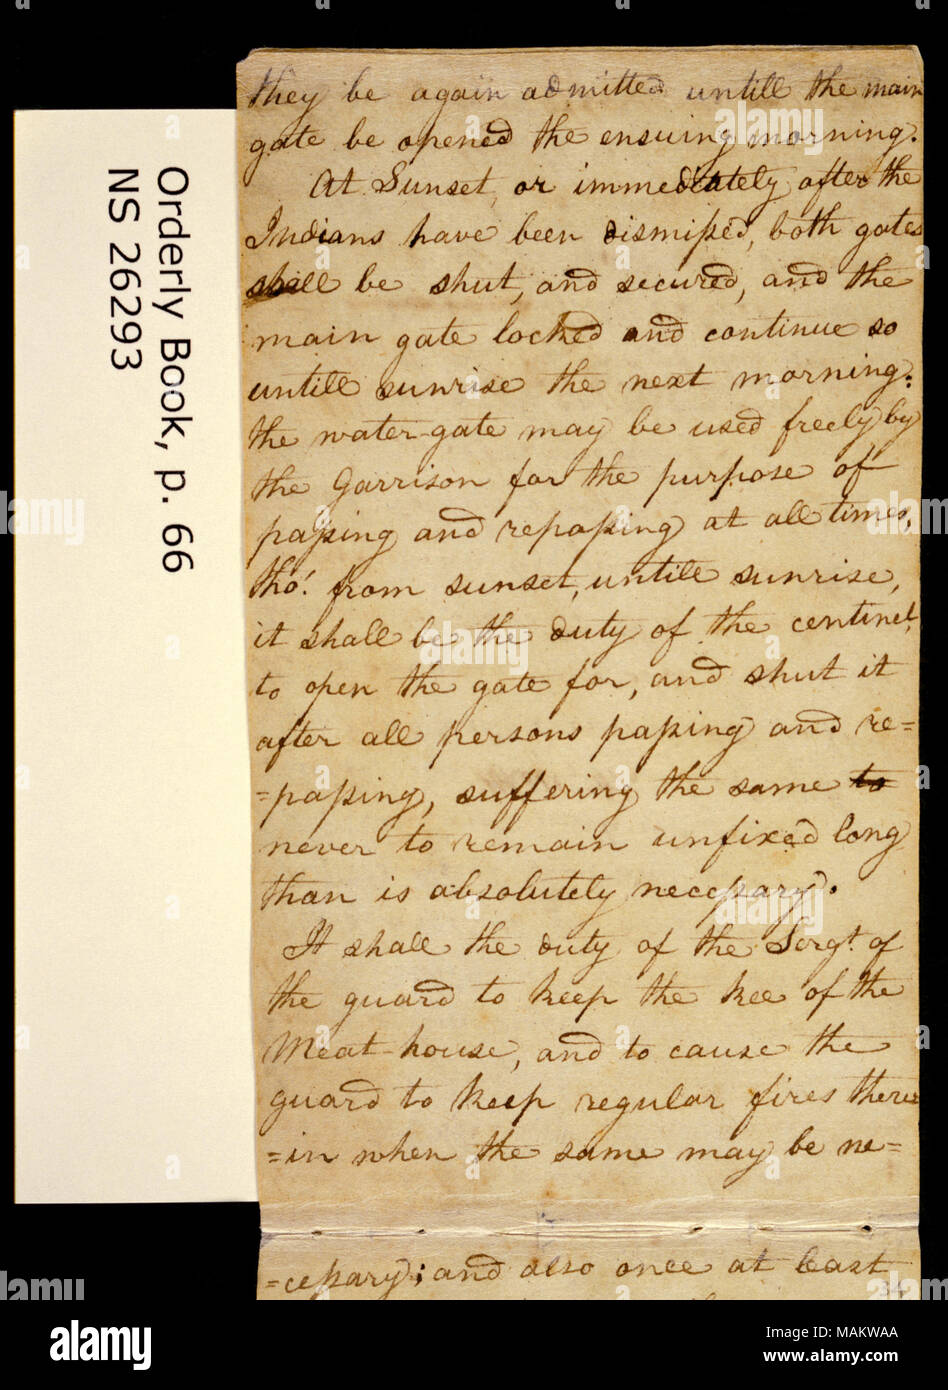 they be again admitted untill the main
gate be opened the ensuing morning.
At Sunset, or immediately after the
Indians have been dismissed, both gates
shall be shut, and secured, and the
main gate locked and continue so
untill sunrise the next morning:
the water-gate may be used freely by
the Garrison for the purpose of
passing and repassing at all times,
tho' from sunset, untill sunrise,
it shall be the duty of the centinel,
to open the gate for, and shut it
after all persons passing and re=
=passing, suffering the same to
never to remain unfixed long
than is absolutely necessary.
It shall the duty of the Sergt. of
the guard to keep the kee of the
Meat-house, and to cause the
guard to keep regular fires there=
=in when the same may be ne=
=cessary; and also once at least
34
Orderly Book, p. 66
NS 26293
alamy
Image ID: MAKWAA
www.alamy.com